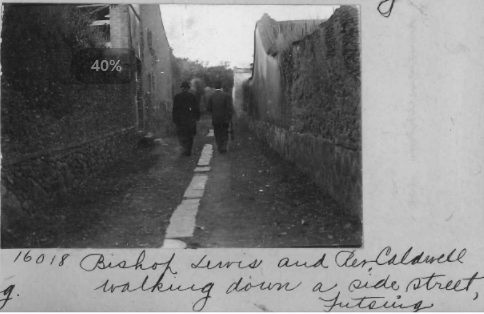 40%
16018 Bishop Lewis and Rev Caldwell
g. walking down a side street,
Futsing